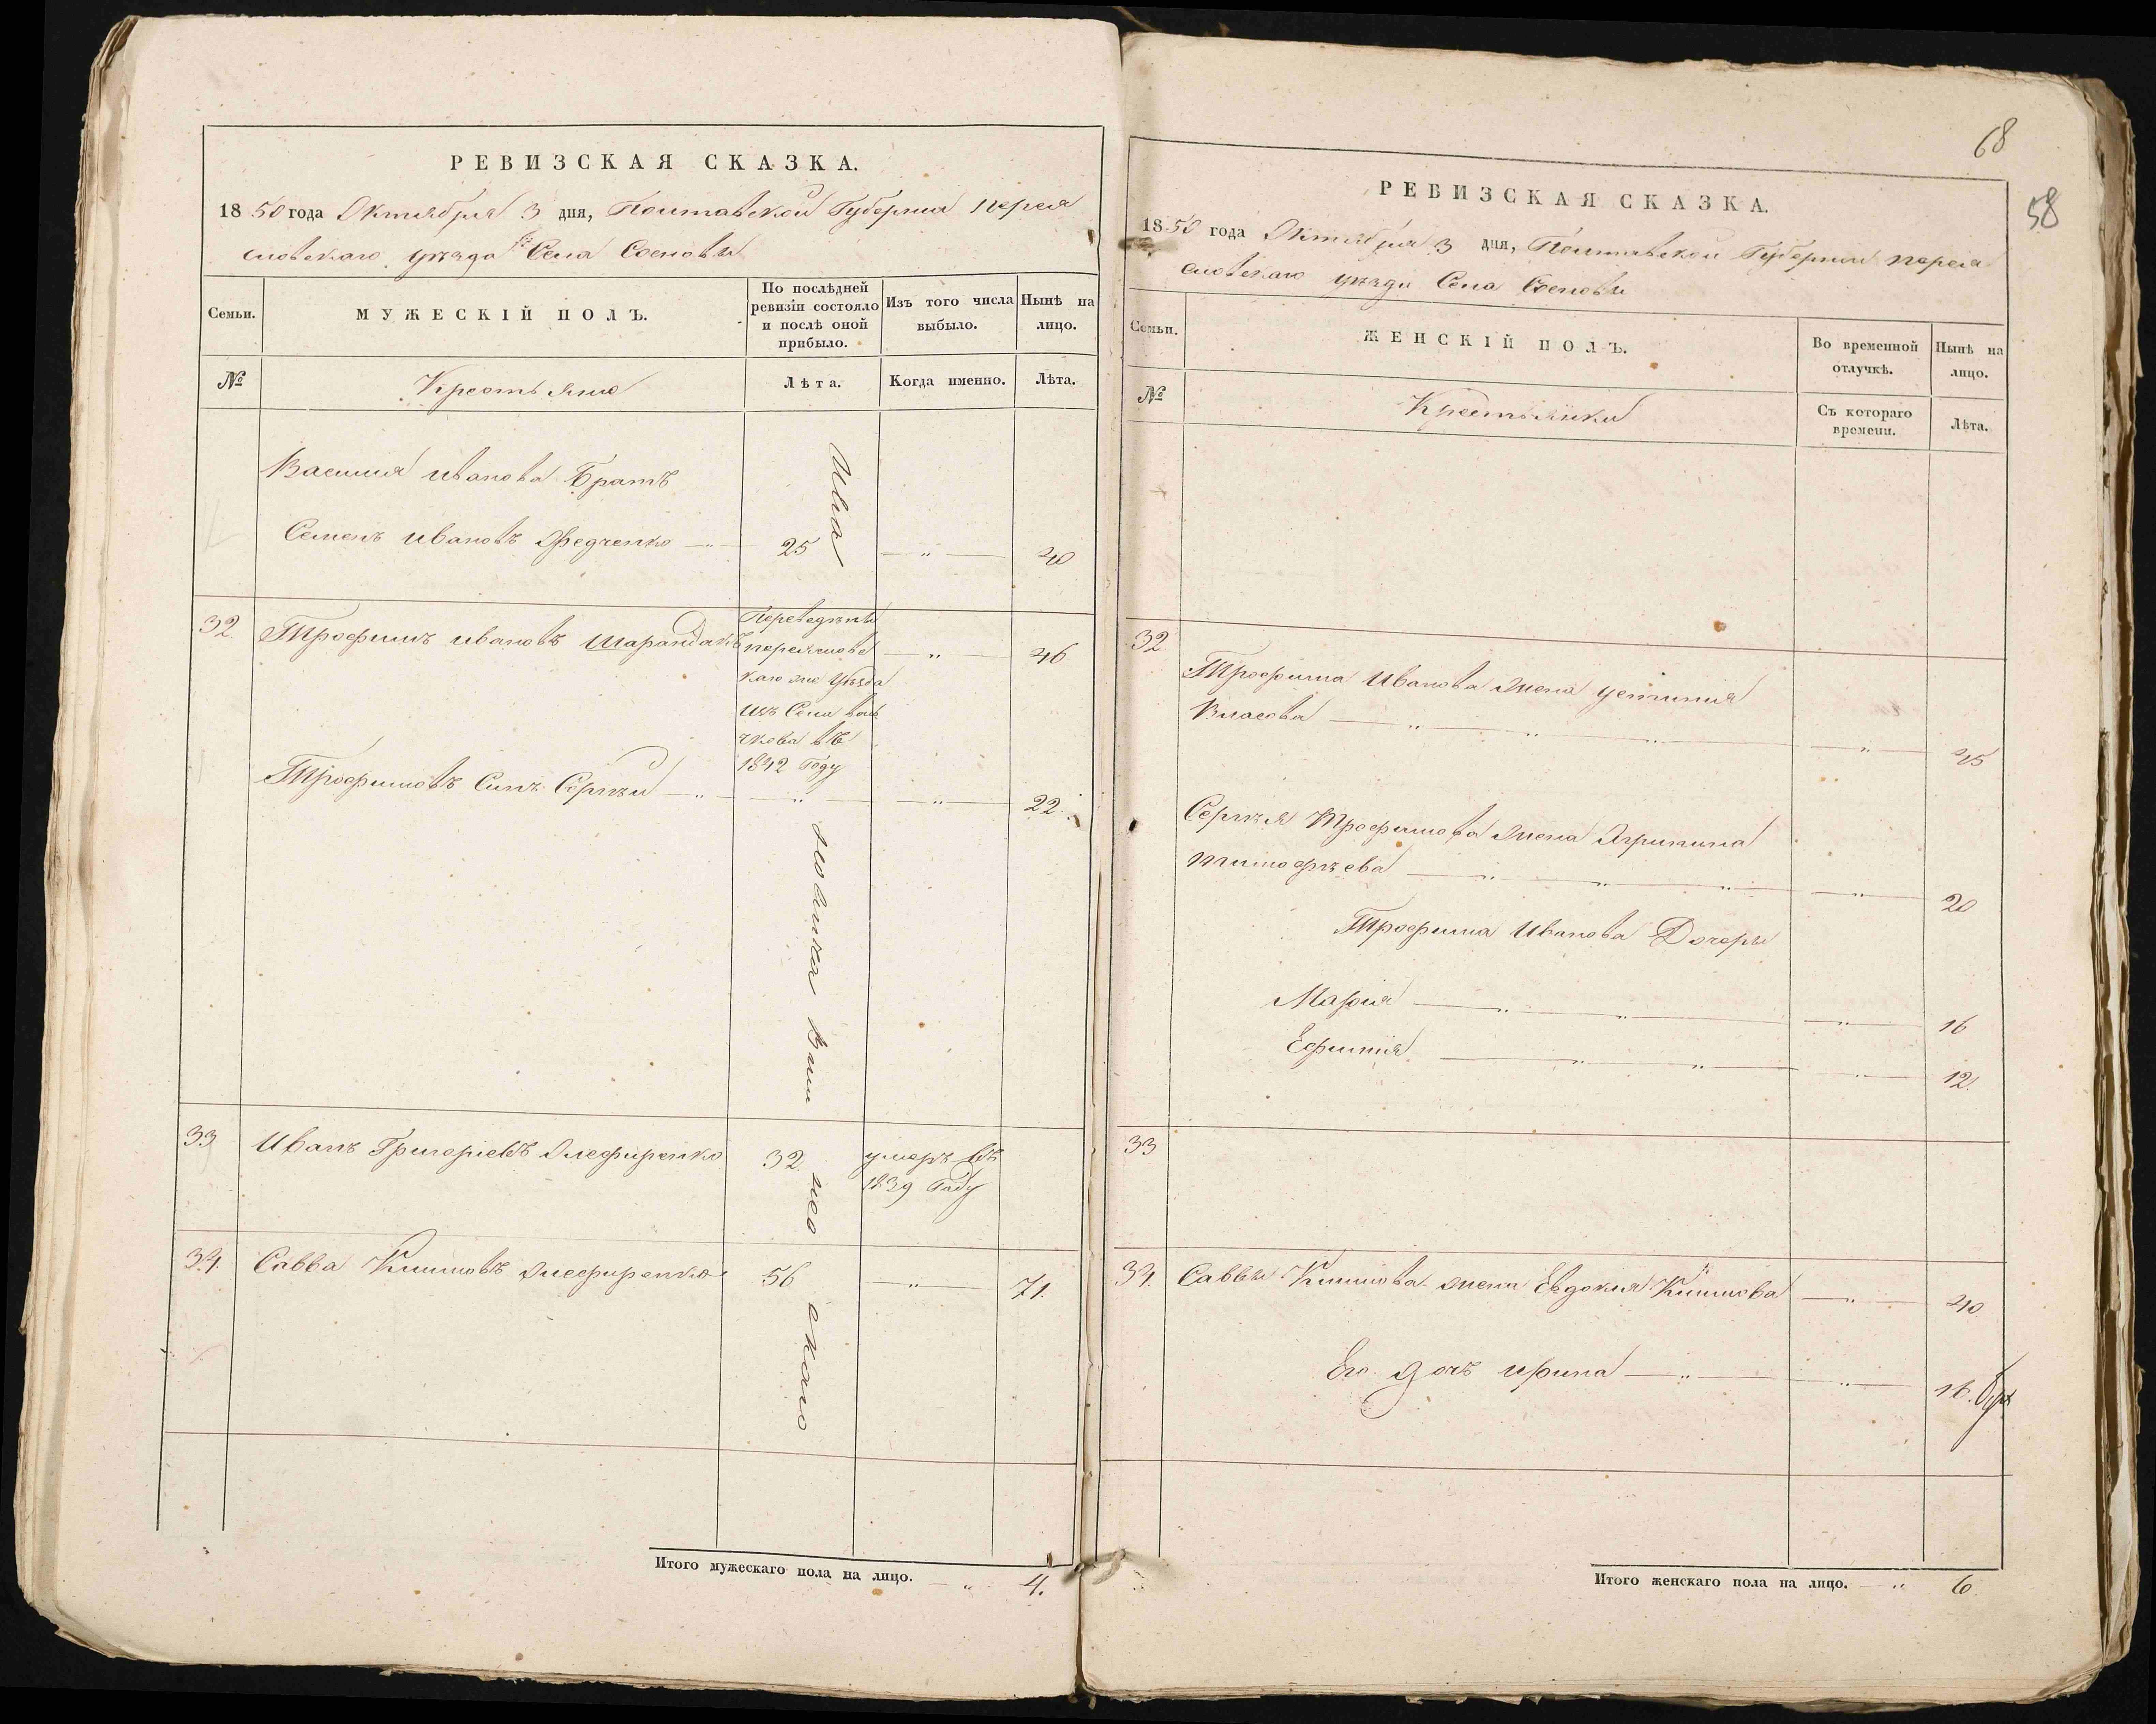 РЕВИЗСКАЯ СКАЗКА.
1850 года Октября 3 дня, Полтавской Губернии Переяс
словскаго уезда Села Сосновы
Семьи.
МУЖЕСКІЙ ПОЛЪ.
По послѣдней ревизіи состояло и послѣ оной прибыло.
Изъ того числа выбыло.
Нынѣ на лицо.
№
Крестьяне
Лѣта.
Когда именно.
Лѣта.
Василия Иванова Братъ
Семенъ Ивановъ Федченко — „ — 25 — „ — 20
32. Трофимъ Ивановъ
Переведены
— „ — 46
каго же Уезда
изъ Села
въ
1842 Году
Трофимовъ Сынъ Сергѣй — „ — „ — „ — 22.
33 Иванъ Григоріевъ Алефиренко 32. умеръ въ
1839 Году
34. Савва Климовъ Алефиренко 56 — „ — 71.
Итого мужескаго пола на лицо. — „ 4.
68
58
РЕВИЗСКАЯ СКАЗКА.
1850 года Октября 3 дня, Полтавской Губернии Перея
словскаго уезда Села Сосновы
Семьи.
ЖЕНСКІЙ ПОЛЪ.
Во временной отлучкѣ.
Нынѣ на лицо.
№
Крестьянки
Съ котораго времени.
Лѣта.
32
Трофима Иванова жена Устиния
Власова — „ — „ — „ — „ — 45
Сергѣя Трофимова жена Агрипина
Тимофѣева — „ — „ — „ — „ — 20
Трофима Иванова Дочери
Мария — „ — „ — „ — 16
Ефимия — „ — „ — „ — 12.
33
34. Саввы Климова жена Евдокия Климова — „ — 40.
Его дочь Ирина — „ — „ — 16.
Итого женскаго пола на лицо. — „ 6.